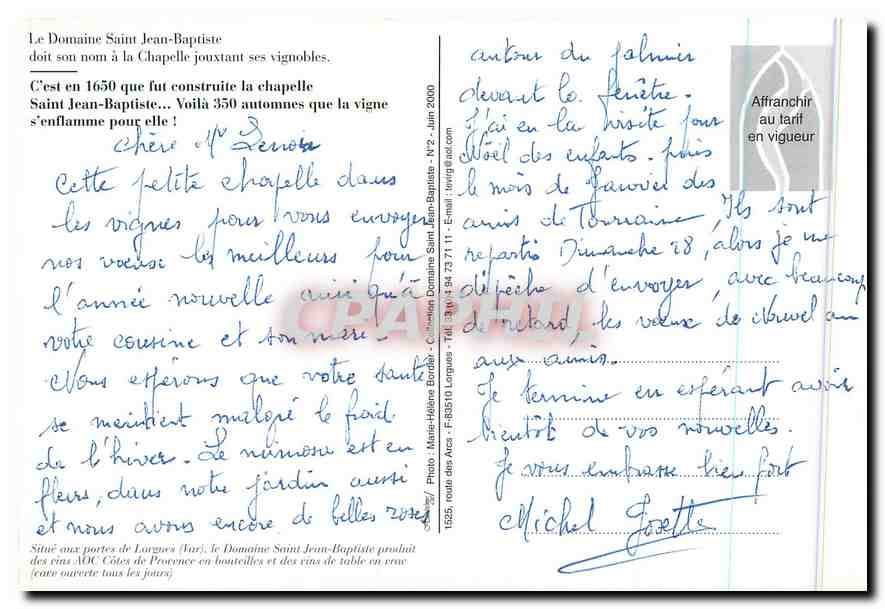 Le Domaine Saint Jean-Baptiste
doit son nom à la Chapelle jouxtant ses vignobles.
C'est en 1650 que fut construite la chapelle
Saint Jean-Baptiste... Voilà 350 automnes que la vigne
s'enflamme pour elle !
Chère Mr
Cette petite chapelle dans
les vignes pour vous envoyer
nos voeux les meilleurs pour
l'année nouvelle ainsi qu'à
votre cousine et son mari.
Nous espérons que votre santé
se maintient malgré le froid
de l'hiver. Le mimosa est en
fleurs, dans notre jardin aussi
et nous avons encore de belles roses
Situé aux portes de Lorgues (Var), le Domaine Saint Jean-Baptiste produit
des vins AOC Côtes de Provence en bouteilles et des vins de table en vrac
(cave ouverte tous les jours)
Photo : Marie-Hélène Bordier - Collection Domaine Saint Jean-Baptiste - N°2 - Juin 2000
1525, route des Arcs - F-83510 Lorgues - Tél. 33 (0)4 94 73 71 11 - E-mail : tevirg@aol.com
autour du palmier
devant la fenêtre.
J'ai eu la visite pour
Noël des enfants. puis
le mois de Janvier des
amis de Touraine, Ils sont
repartis Dimanche 28, alors je me
dépêche d'envoyer, avec beaucoup
de retard, les voeux de Nouvel an
aux amis.
Je termine en espérant avoir
bientôt de vos nouvelles.
Je vous embrasse bien fort
Michel Josette
Affranchir
au tarif
en vigueur
CPAPHIL